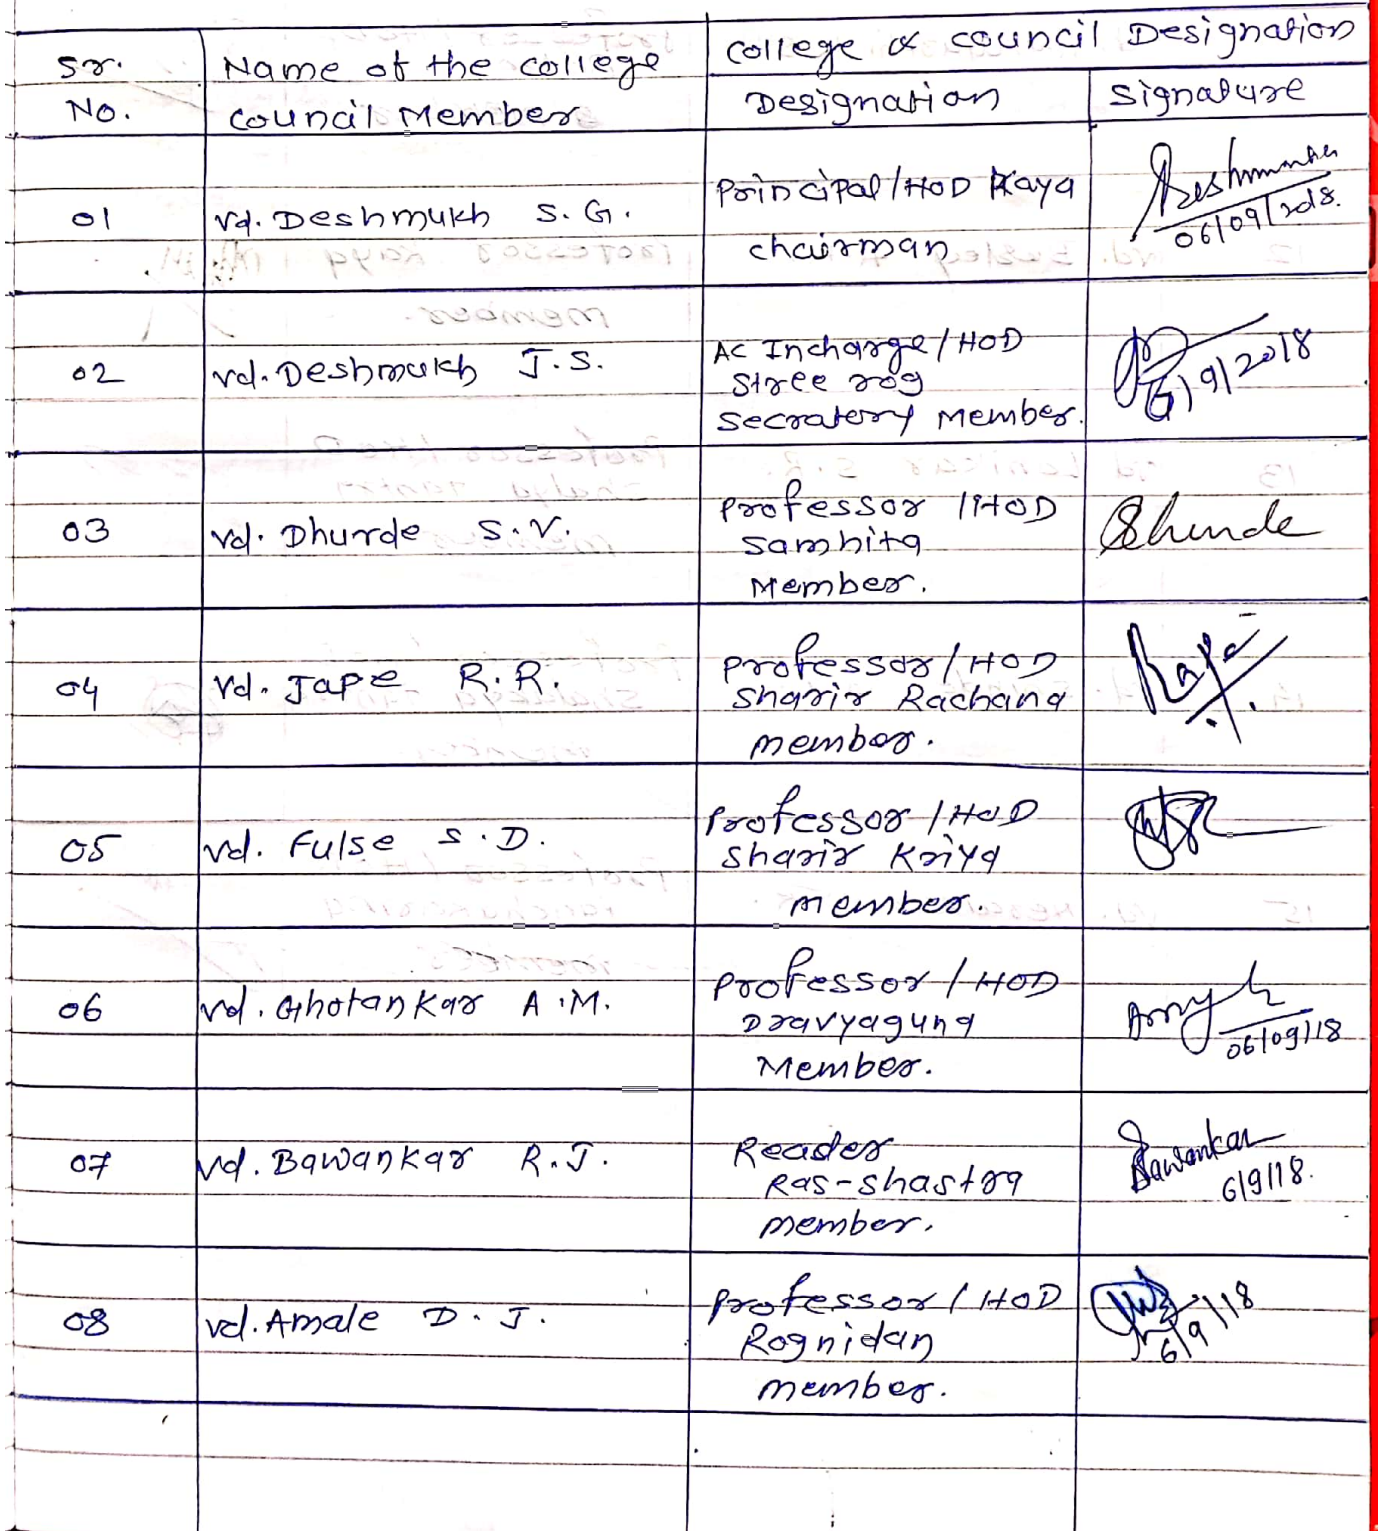 Sr. No.
Name of the college council Member
college & council Designation
Designation
Signature
01
Vd. Deshmukh S.G.
Principal / HOD Kaya
chairman
Deshmukh
06/09/2018.
02
Vd. Deshmukh J.S.
AC Incharge / HOD
Stree rog
Secratery Member.
6/9/2018
03
Vd. Dhurde S.V.
Professor / HOD
Samhita
Member.
04
Vd. Jape R.R.
Professor / HOD
Sharir Rachana
member.
05
Vd. Fulse S.D.
Professor / HOD
Sharir Kriya
member.
06
Vd. Ghotankar A.M.
Professor / HOD
Dravyaguna
Member.
06/09/18
07
Vd. Bawankar R.J.
Reader
Ras-shastra
member.
Bawankar
6/9/18.
08
Vd. Amale D.J.
Professor / HOD
Rognidan
member.
6/9/18